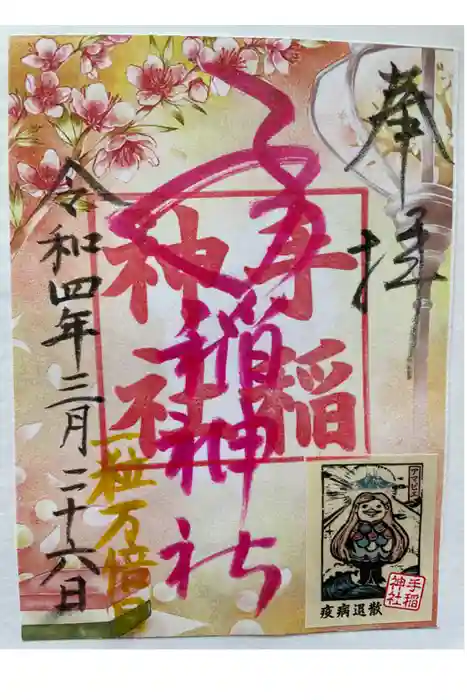 奉拝
手稲神社
手稲神社
令和四年三月二十六日
一粒万倍日
アマビエ
疫病退散
手稲神社